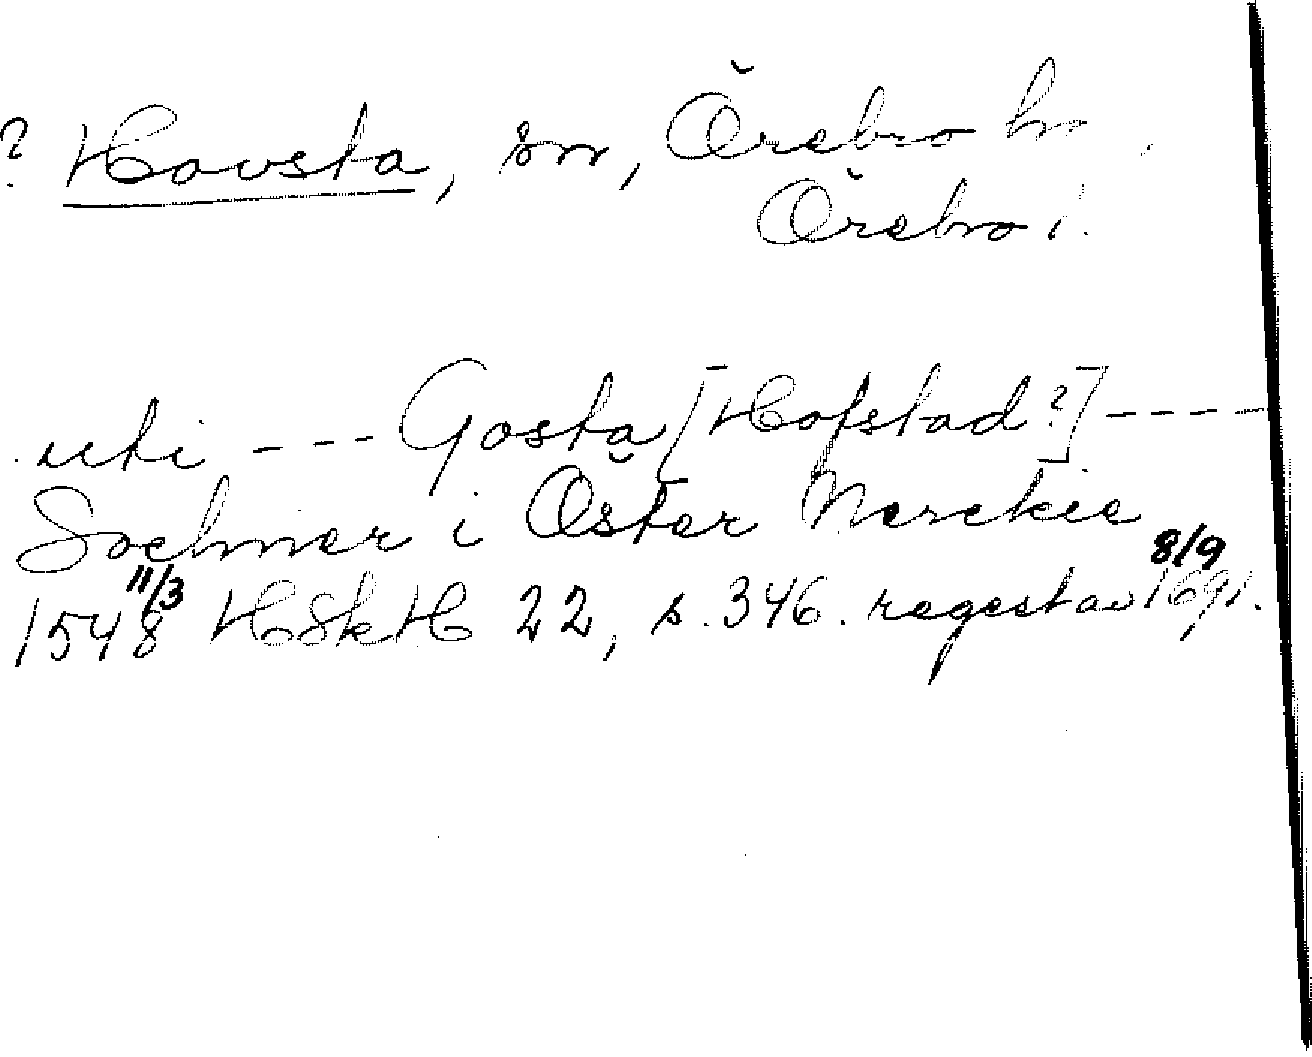 ? Hovsta, sn, Örebro hd,
Örebro l.
uti --- Gosta [Hofstad?] ----
Sochner i Öster Nerckie
11/3 8/9
1548 HSkH 22, s. 346. regest av 1691.